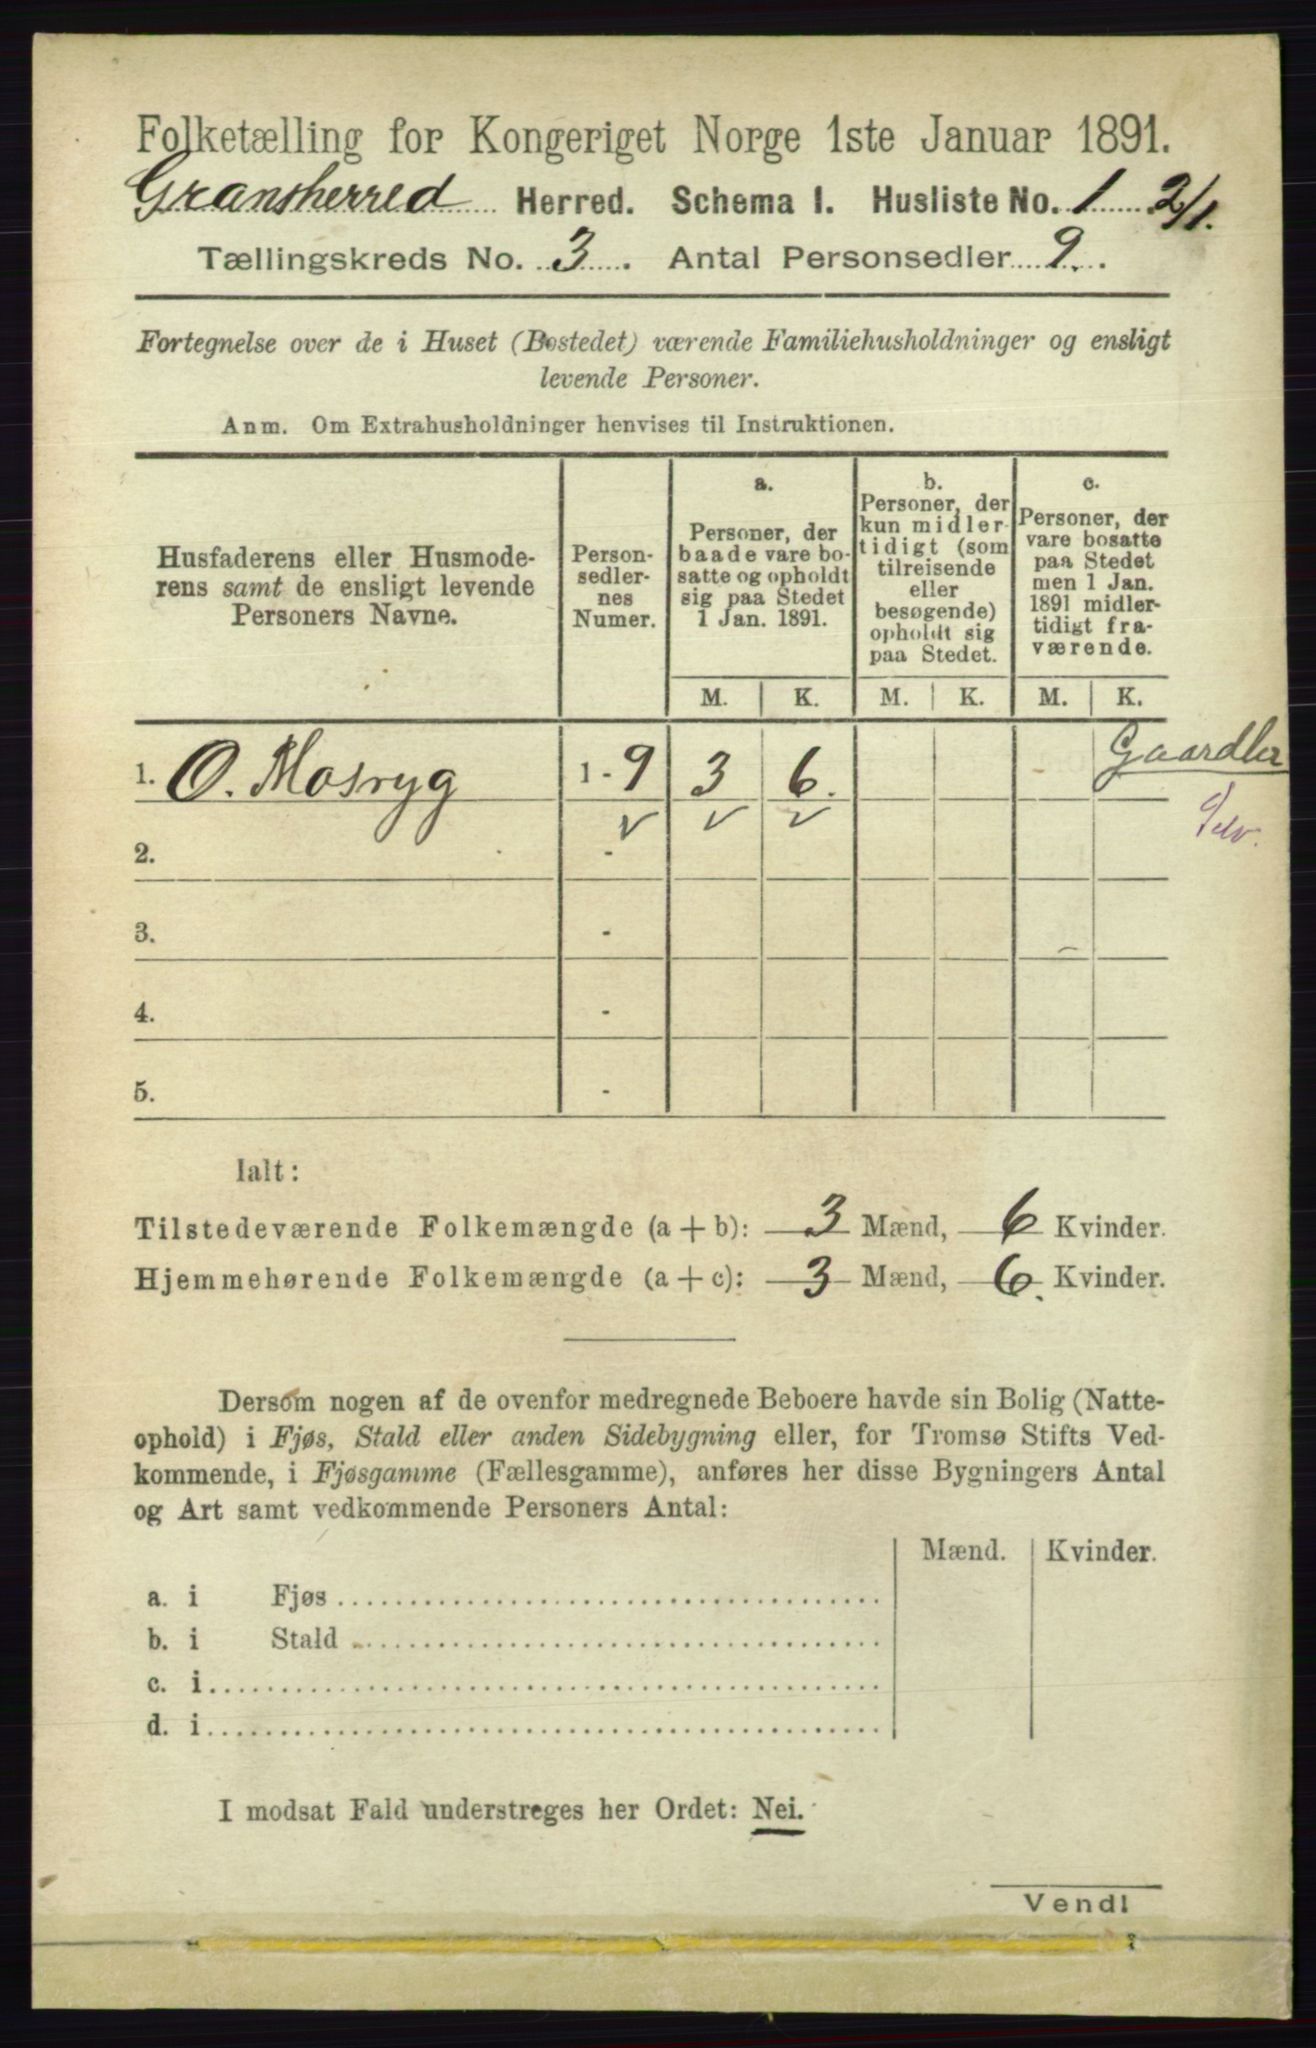 Folketælling for Kongeriget Norge 1ste Januar 1891.
Gransherred Herred. Schema I. Husliste No. 1 2/1.
Tællingskreds No. 3. Antal Personsedler 9.
Fortegnelse over de i Huset (Bostedet) værende Familiehusholdninger og ensligt
levende Personer.
Anm. Om Extrahusholdninger henvises til Instruktionen.
Husfaderens eller Husmode-
rens samt de ensligt levende
Personers Navne.
Person-
sedler-
nes
Numer.
a.
Personer, der
baade vare bo-
satte og opholdt
sig paa Stedet
1 Jan. 1891.
b.
Personer, der
kun midler-
tidigt (som
tilreisende
eller
besøgende)
opholdt sig
paa Stedet.
c.
Personer, der
vare bosatte
paa Stedet
men 1 Jan.
1891 midler-
tidigt fra-
værende.
M. K. M. K. M. K.
1. O. Mosryg 1 - 9 3 6. Gaardbr
2. -
3. -
4. -
5. -
Ialt:
Tilstedeværende Folkemængde (a + b): 3 Mænd, 6 Kvinder.
Hjemmehørende Folkemængde (a + c): 3 Mænd, 6. Kvinder.
Dersom nogen af de ovenfor medregnede Beboere havde sin Bolig (Natte-
ophold) i Fjøs, Stald eller anden Sidebygning eller, for Tromsø Stifts Ved-
kommende, i Fjøsgamme (Fællesgamme), anføres her disse Bygningers Antal
og Art samt vedkommende Personers Antal:
Mænd. Kvinder.
a. i Fjøs
b. i Stald
c. i
d. i
I modsat Fald understreges her Ordet: Nei.
Vend!